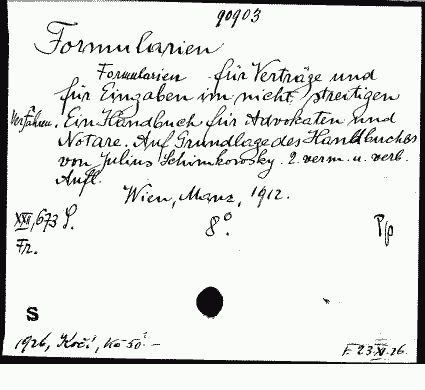 90903
Formularien
Formularien für Verträge und
für Eingaben im nicht streitigen
Verfahren. Ein Handbuch für Advokaten und
Notare. Auf Grundlage des Handbuches
von Julius Schimkowsky. 2. verm. u. verb.
Aufl.
Wien, Manz, 1912.
XVI, 673 S. 8°. Pp
Fr.
S
1926, Kočí, Kč 50.–
F. 23.XI.26.